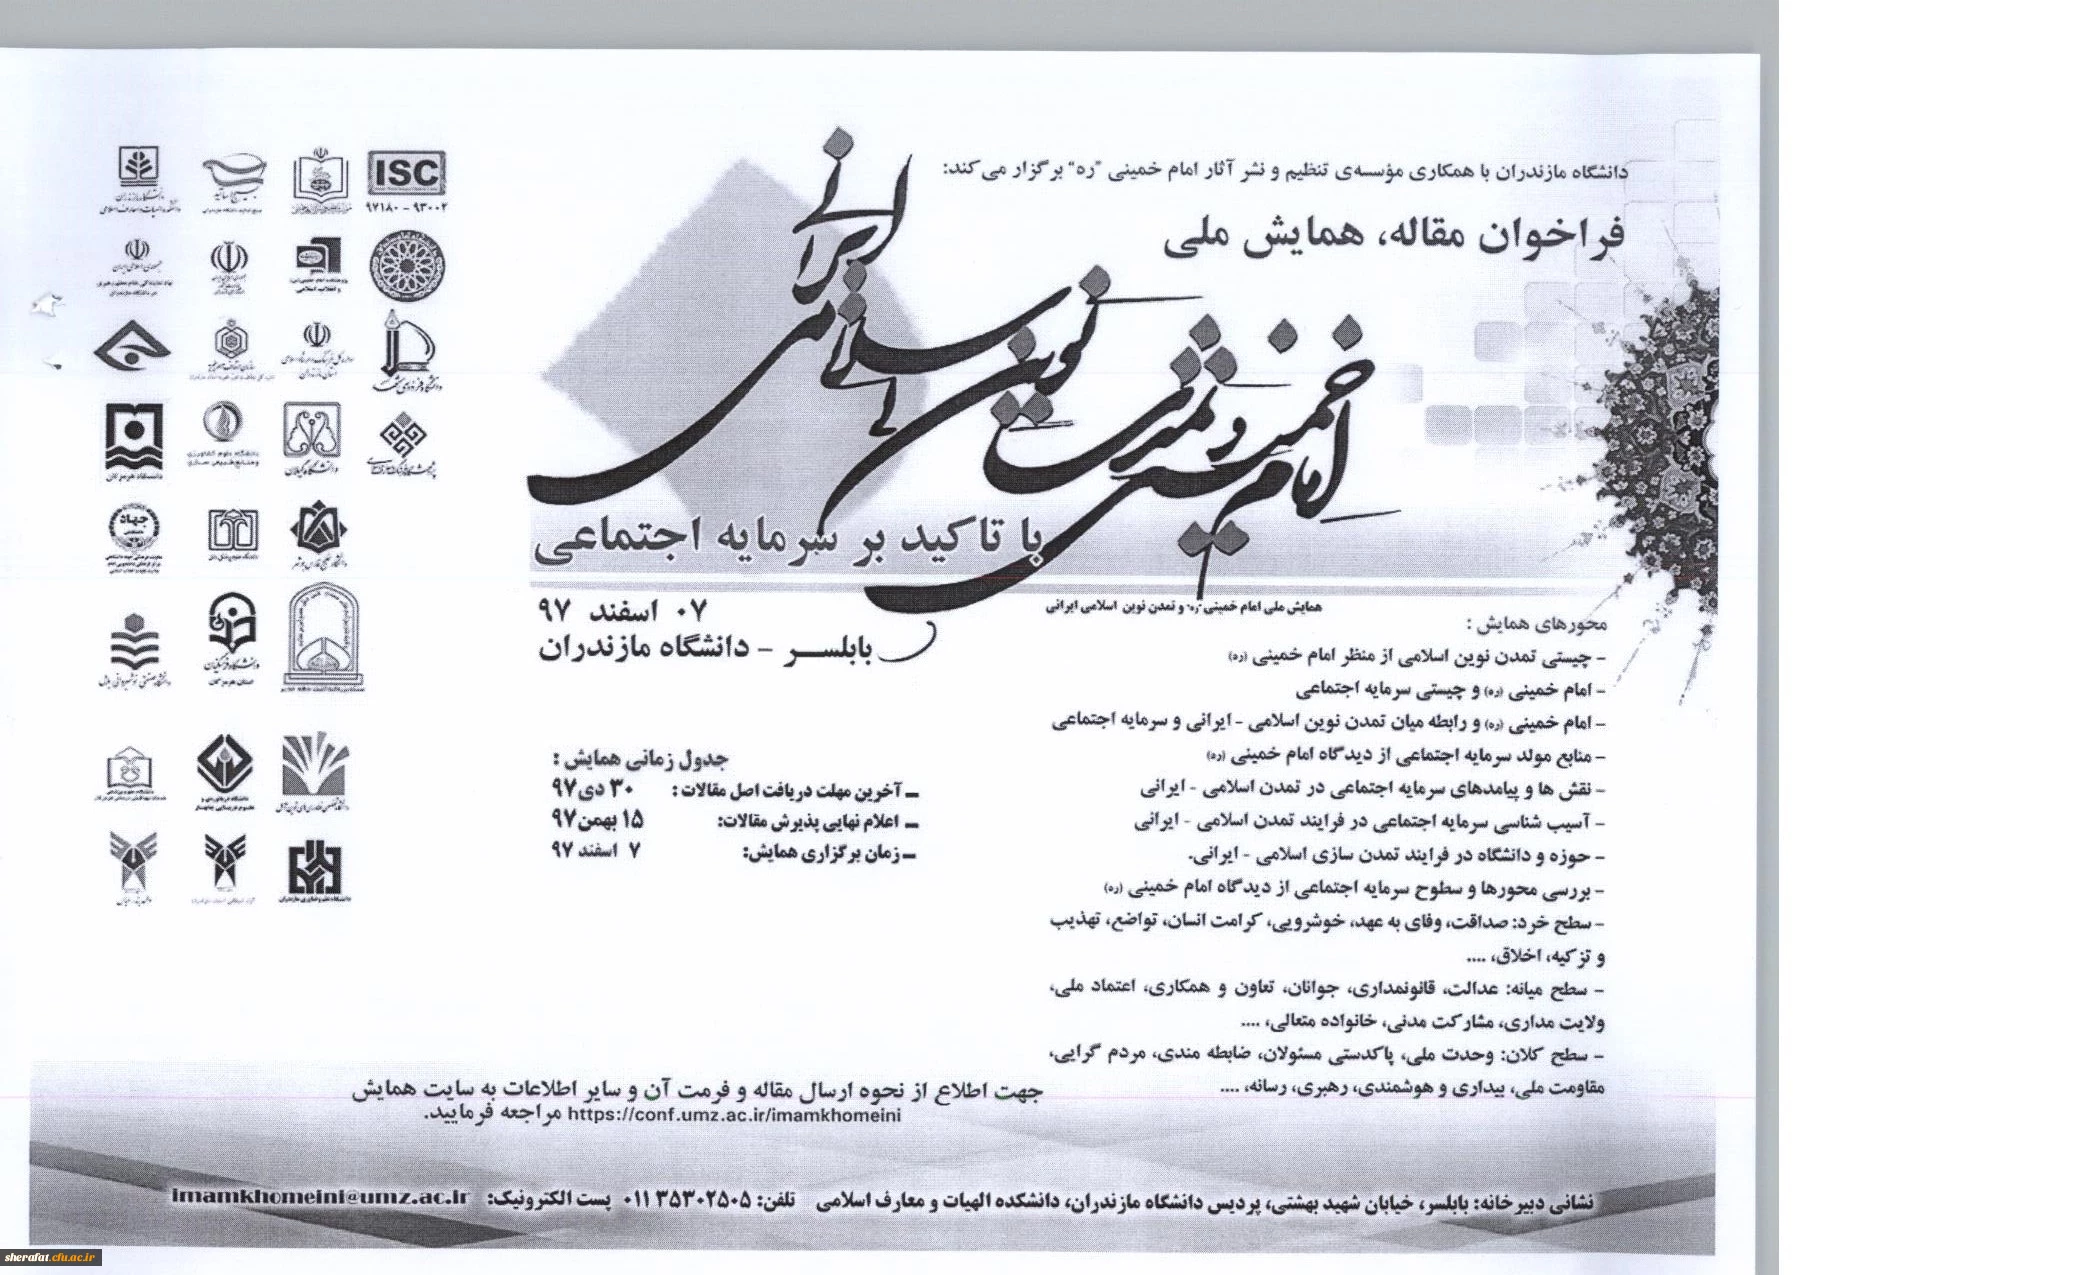 دانشگاه مازندران با همکاری مؤسسه‌ی تنظیم و نشر آثار امام خمینی "ره" برگزار می‌کند:
فراخوان مقاله، همایش ملی
امام خمینی و تمدن نوین اسلامی ایرانی
با تاکید بر سرمایه اجتماعی
همایش ملی امام خمینی "ره" و تمدن نوین اسلامی ایرانی
۰۷ اسفند ۹۷
بابلسر - دانشگاه مازندران
محورهای همایش :
- چیستی تمدن نوین اسلامی از منظر امام خمینی (ره)
- امام خمینی (ره) و چیستی سرمایه اجتماعی
- امام خمینی (ره) و رابطه میان تمدن نوین اسلامی - ایرانی و سرمایه اجتماعی
- منابع مولد سرمایه اجتماعی از دیدگاه امام خمینی (ره)
- نقش ها و پیامدهای سرمایه اجتماعی در تمدن اسلامی - ایرانی
- آسیب شناسی سرمایه اجتماعی در فرایند تمدن اسلامی - ایرانی
- حوزه و دانشگاه در فرایند تمدن سازی اسلامی - ایرانی.
- بررسی محورها و سطوح سرمایه اجتماعی از دیدگاه امام خمینی (ره)
- سطح خرد: صداقت، وفای به عهد، خوشرویی، کرامت انسان، تواضع، تهذیب
و تزکیه، اخلاق، ....
- سطح میانه: عدالت، قانونمداری، جوانان، تعاون و همکاری، اعتماد ملی،
ولایت مداری، مشارکت مدنی، خانواده متعالی، ....
- سطح کلان: وحدت ملی، پاکدستی مسئولان، ضابطه مندی، مردم گرایی،
مقاومت ملی، بیداری و هوشمندی، رهبری، رسانه، ....
جدول زمانی همایش :
- آخرین مهلت دریافت اصل مقالات : ۳۰ دی ۹۷
- اعلام نهایی پذیرش مقالات: ۱۵ بهمن ۹۷
- زمان برگزاری همایش: ۷ اسفند ۹۷
ISC
۹۷۱۸۰ - ۹۳۰۰۲
دانشگاه گیلان
جهاد
جهت اطلاع از نحوه ارسال مقاله و فرمت آن و سایر اطلاعات به سایت همایش
https://conf.umz.ac.ir/imamkhomeini مراجعه فرمایید.
نشانی دبیرخانه: بابلسر، خیابان شهید بهشتی، پردیس دانشگاه مازندران، دانشکده الهیات و معارف اسلامی تلفن: ۰۱۱۳۵۳۰۲۵۰۵ پست الکترونیک: imamkhomeini@umz.ac.ir
sherafat.cfu.ac.ir